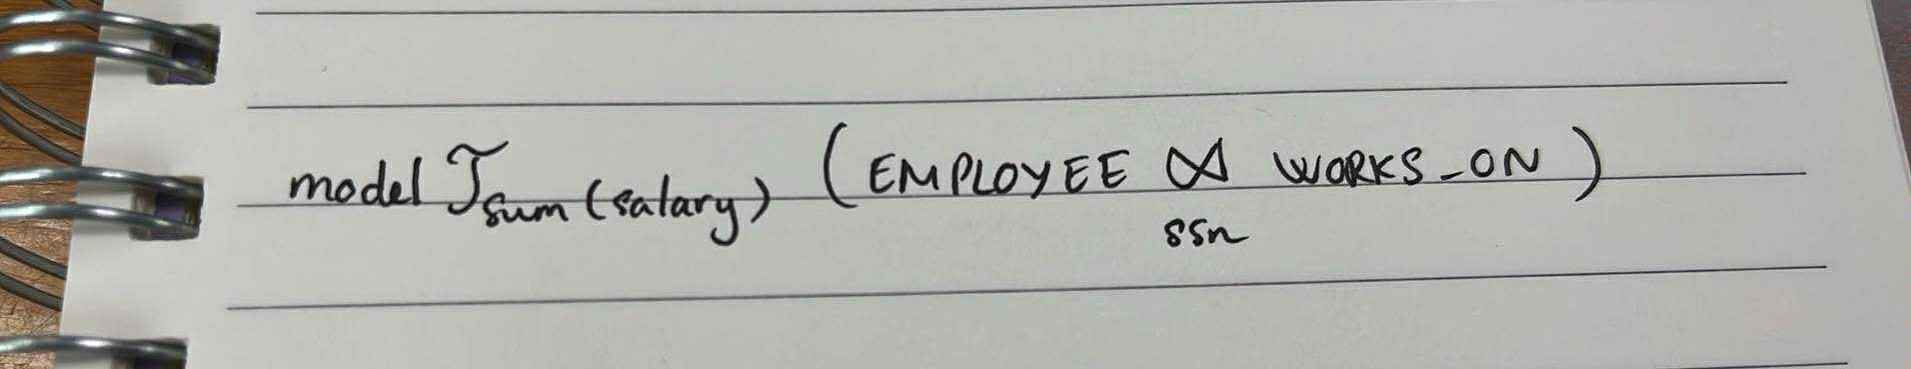 model ℑ sum (salary) (EMPLOYEE ⋈ WORKS_ON)
ssn